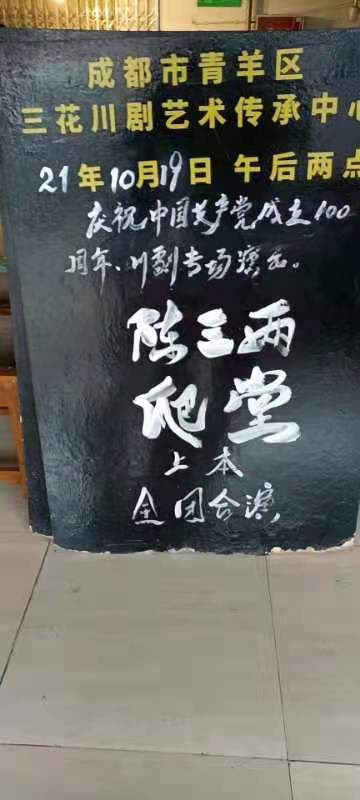 成都市青羊区
三花川剧艺术传承中心
21年10月19日 午后两点
庆祝中国共产党成立100
周年、川剧专场演出。
陈三两
爬堂
上本
全团合演